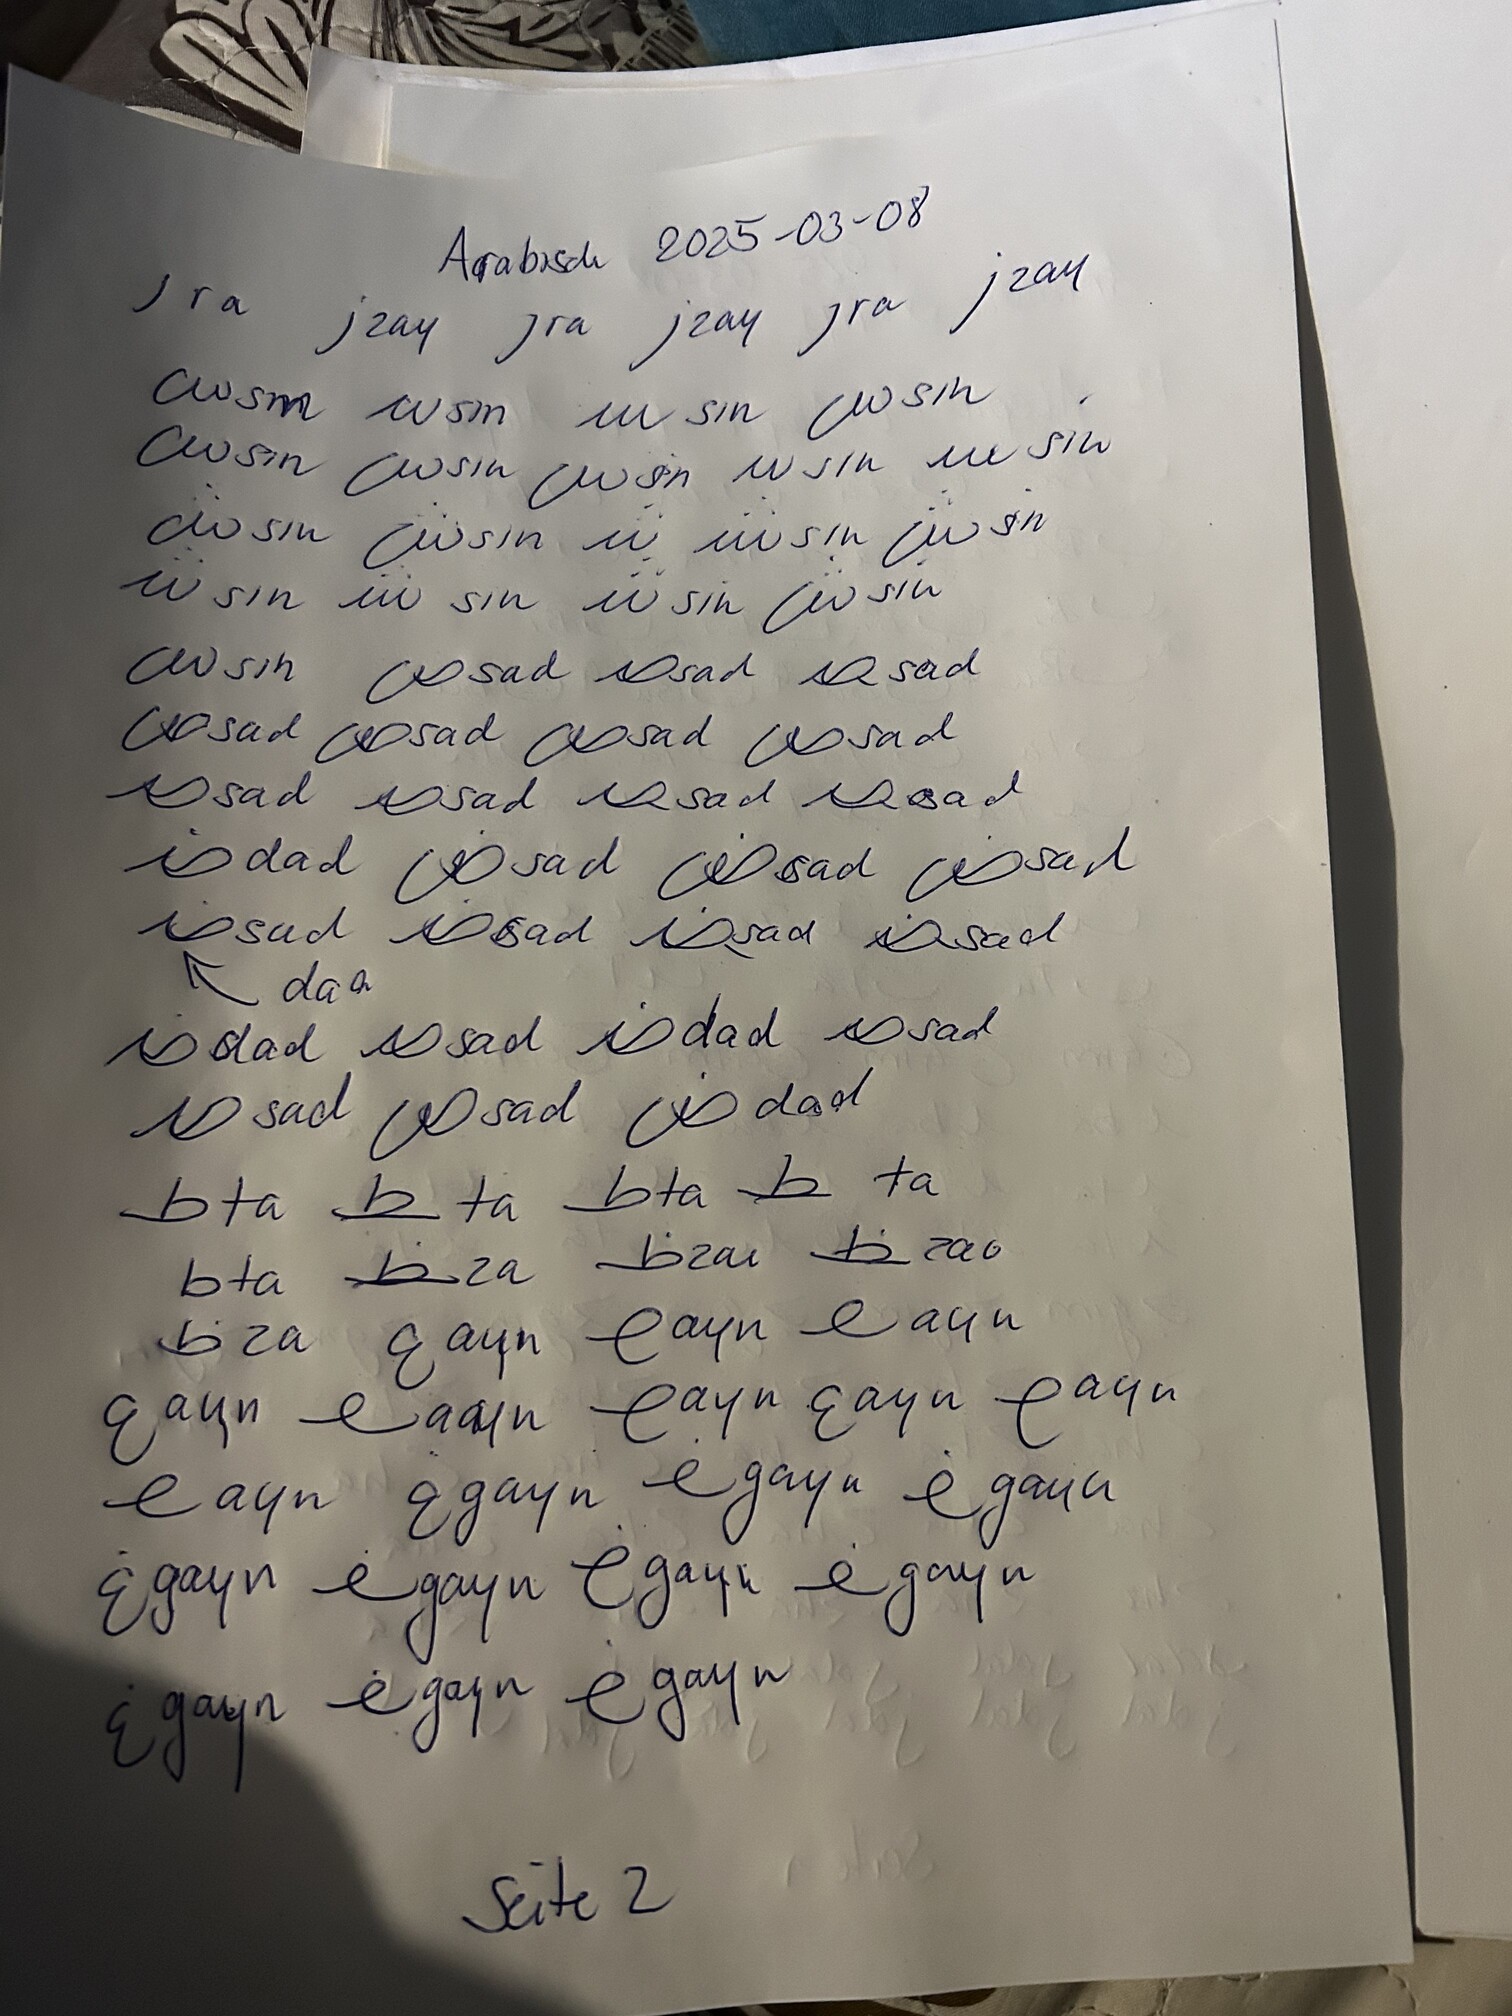 Arabisch 2025-03-08
ر ra ز zay ر ra ز zay ر ra ز zay
س sin سـ sin ـسـ sin س sin
س sin س sin س sin سـ sin ـسـ sin
ش sin ش sin شـ ـشـ sin ش sin
شـ sin ـشـ sin شـ sin ش sin
س sin ص sad صـ sad ـصـ sad
ص sad ص sad ص sad ص sad
صـ sad صـ sad ـصـ sad ـصـ sad
ضـ dad ض sad ض sad ض sad
ضـ sad ضـ sad ـضـ sad ـضـ sad
↖ dad
ضـ dad صـ sad ضـ dad صـ sad
صـ sad ص sad ض dad
ـط ta ـطـ ta ـط ta ـطـ ta
ط ta ـظـ za ـظ za ـظـ za
ظ za ع ayn ـع ayn ـعـ ayn
ع ayn ـعـ ayn ـع ayn ع ayn ـع ayn
ـعـ ayn غ gayn ـغـ gayn ـغـ gayn
غ gayn ـغـ gayn ـغ gayn ـغـ gayn
غ gayn ـغـ gayn ـغـ gayn
Seite 2